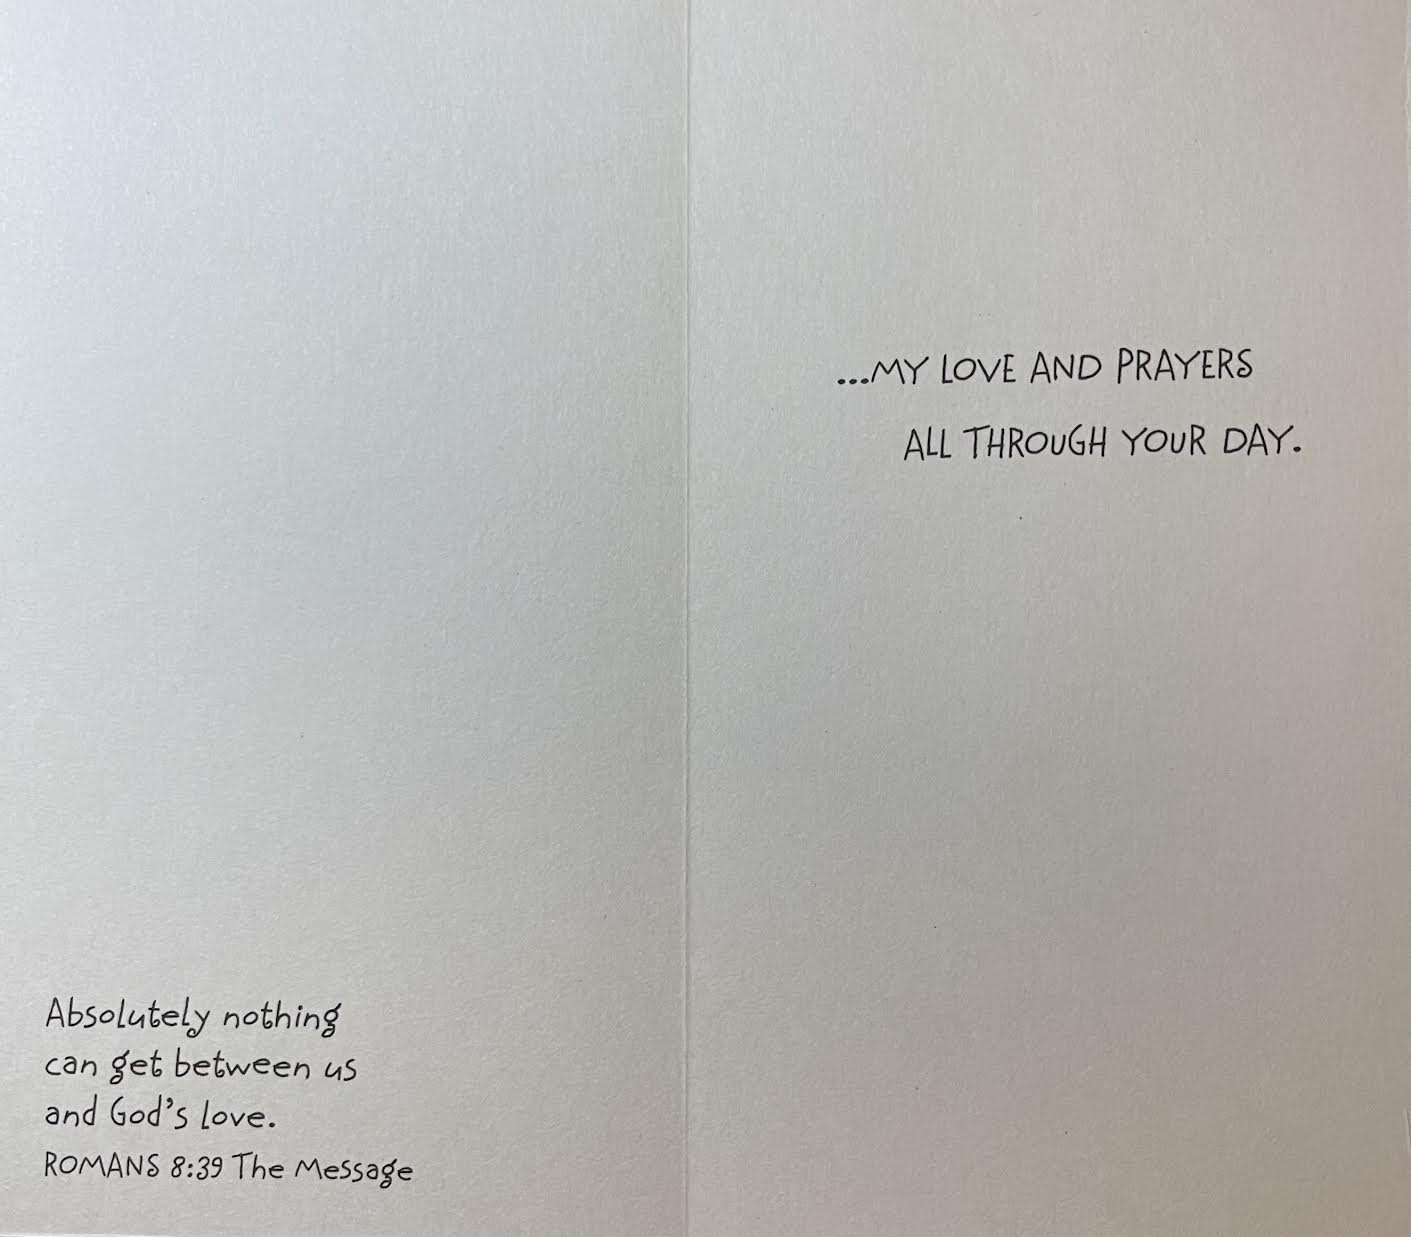 Absolutely nothing
can get between us
and God's love.
ROMANS 8:39 The Message
...MY LOVE AND PRAYERS
ALL THROUGH YOUR DAY.